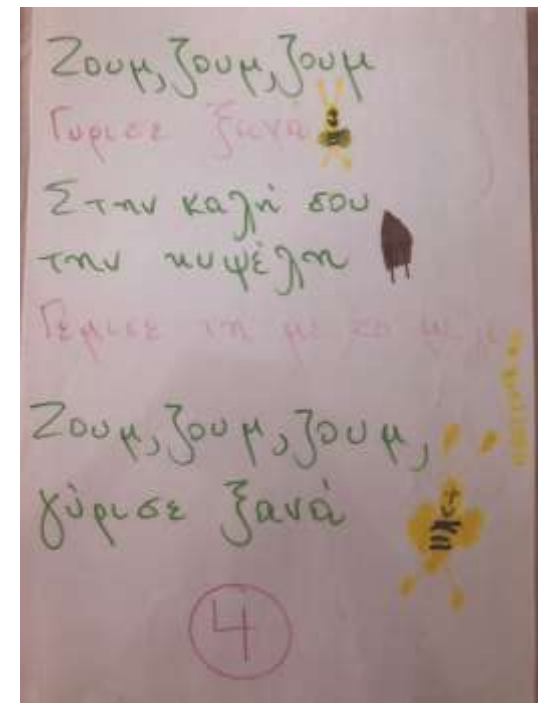 Ζουμ, ζουμ, ζουμ
Γυρισε ξανά
Στην καλή σου
την κυψέλη
Γέμισε τη με το μέλι
Ζουμ, ζουμ, ζουμ,
γύρισε ξανά
4